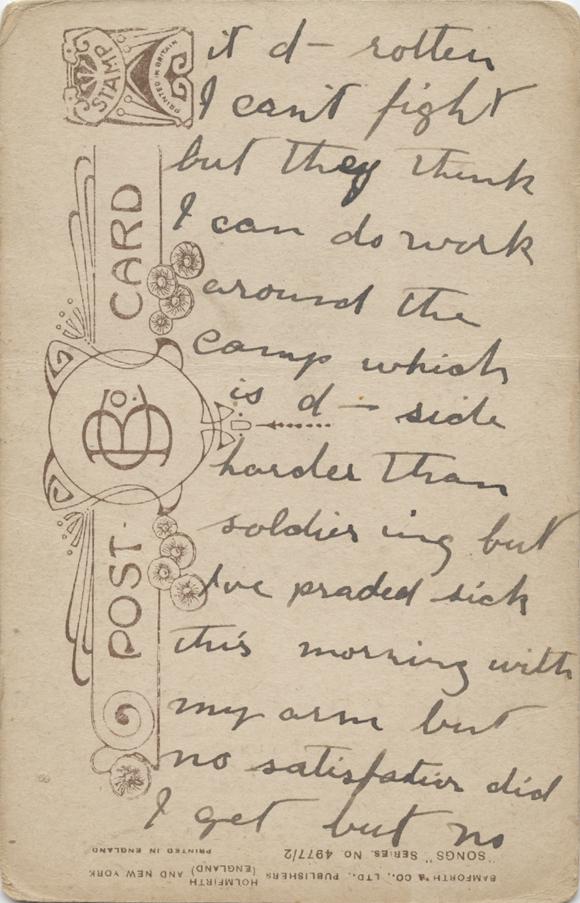 it d— rotten
I can't fight
but they think
I can do work
around the
camp which
is d— side
harder than
soldier ing but
I've praded sick
this morning with
my arm but
no satisfation did
I get but no
STAMP
PRINTED IN BRITAIN
POST CARD
B Co.
BAMFORTH & CO., LTD., PUBLISHERS (HOLMFIRTH (ENGLAND) AND NEW YORK
"SONGS" SERIES. NO 4977/2
PRINTED IN ENGLAND